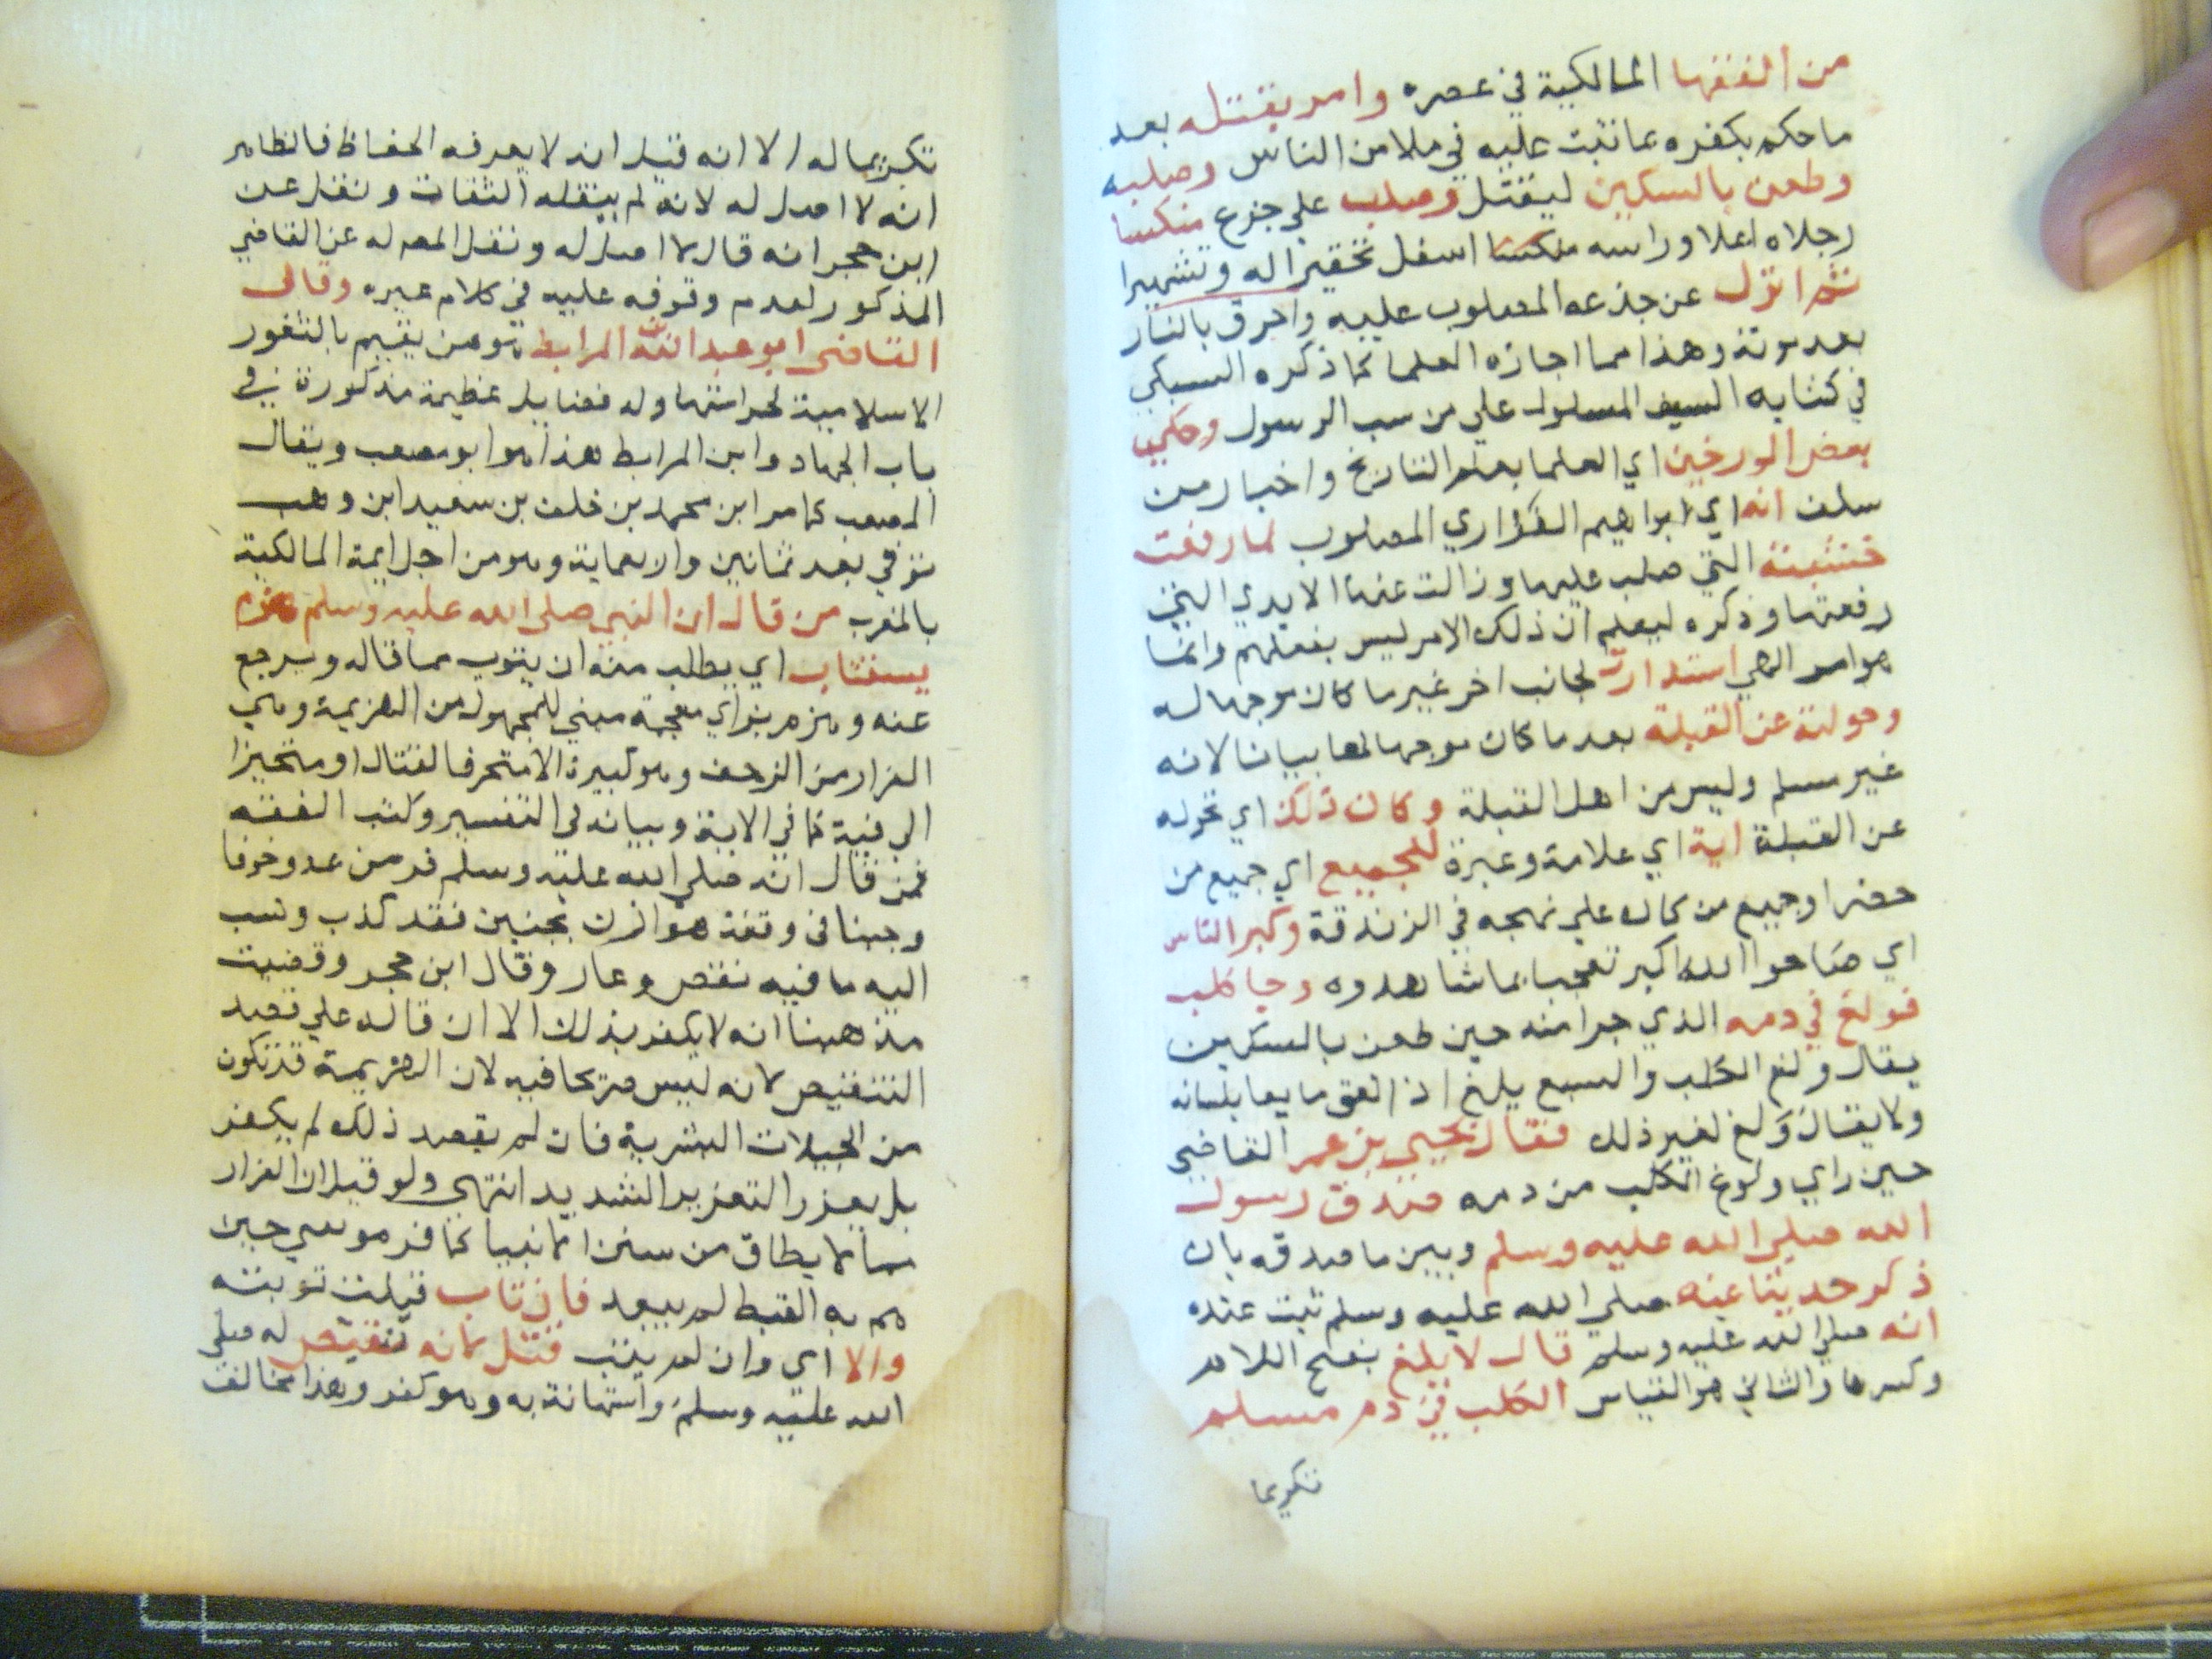 من الفقها المالكية في عصره وامر بقتله بعد
ما حكم بكفره بما ثبت عليه في ملا من الناس وصلبه
وطعن بالسكين ليقتل وصلب علي جزع منكسا
رجلاه اعلا وراسه منكسا اسفل تحقيرا له وتشهيرا
ثم انزل عن جذعه المصلوب عليه واحرق بالنار
بعد موته وهذا مما اجازه العلما كما ذكره السبكي
في كتابه السيف المسلول علي من سب الرسول وحكي
بعض المورخين اي العلما بعلم التاريخ واخبار من
سلف انه اي ابراهيم الفزاري المصلوب لما رفعت
خشبته التي صلب عليها وزالت عنها الايدي التي
رفعتها وذكره ليعلم ان ذلك الامر ليس بفعلهم وانما
هو امر الهي استدارت لجانب اخر غير ما كان موجها له
وحولته عن القبلة بعد ما كان موجها لها بيانا لانه
غير مسلم وليس من اهل القبلة وكان ذلك اي تحوله
عن القبلة اية اي علامة وعبرة للجميع اي جميع من
حضر او جميع من كان علي نهجه في الزندقة وكبر الناس
اي صاحوا الله اكبر تعجبا بما شاهدوه وجا كلب
فولغ في دمه الذي جرا منه حين طعن بالسكين
يقال ولغ الكلب والسبع يلغ اذا لعق مايعا بلسانه
ولا يقال وَلغ لغير ذلك فقال يحيي بن عمر القاضي
حين راي ولوغ الكلب من دمه صدق رسول
الله صلي الله عليه وسلم وبين ما صدقه بان
ذكر حديثا عنه صلي الله عليه وسلم ثبت عنده
انه صلي الله عليه وسلم قال لا يلغ بفتح اللام
وكسرها والثاني هو القياس الكلب في دم مسلم
تكريما
تكريما له الا انه قيل انه لا يعرفه الحفاظ فالظاهر
انه لا اصل له لانه لم ينقله الثقات ونقل عن
ابن حجر انه قال لا اصل له ونقل المص له عن القاضي
المذكور لعدم وقوفه عليه في كلام غيره وقال
القاضي ابو عبد الله بن المرابط هو من يقيم بالثغور
الاسلامية لحراستها وله فضايل عظيمة مذكورة في
باب الجهاد وابن المرابط هذا هو ابو مصعب ويقال
المصعب كما مر ابن محمد بن خلف بن سعيد ابن وهب
توفي بعد ثمانين واربعماية وهو من اجل ايمة المالكية
بالمغرب من قال ان النبي صلي الله عليه وسلم هزم
يستتاب اي يطلب منه ان يتوب مما قاله ويرجع
عنه وهزم بزاي معجمة مبني للمجهول من الهزيمة وهي
الفرار من الزحف وهو كبيرة الا متحرفا لقتال او متحيزا
الي فئة كما في الاية وبيانه في التفسير وكتب الفقه
فمن قال انه صلي الله عليه وسلم فر من عدو خوفا
وجبنا في وقعة هوازن بحنين فقد كذب ونسب
اليه ما فيه نقص وعار وقال ابن حجر وقضيت
مذهبنا انه لا يكفر بذلك الا ان قاله علي قصد
التنقيص لانه ليس صريحا فيه لان الهزيمة قد تكون
من الجبلات البشرية فان لم يقصد ذلك لم يكفر
بل يعزر التعزير الشديد انتهي ولو قيل ان الفرار
مما لا يطاق من سنن الانبيا كما فر موسي حين
هم به القبط لم يبعد فان تاب قبلت توبته
والا اي وان لم يتب قتل لانه تنقيص له صلي
الله عليه وسلم واستهانة به وهو كفر وهذا مخالف